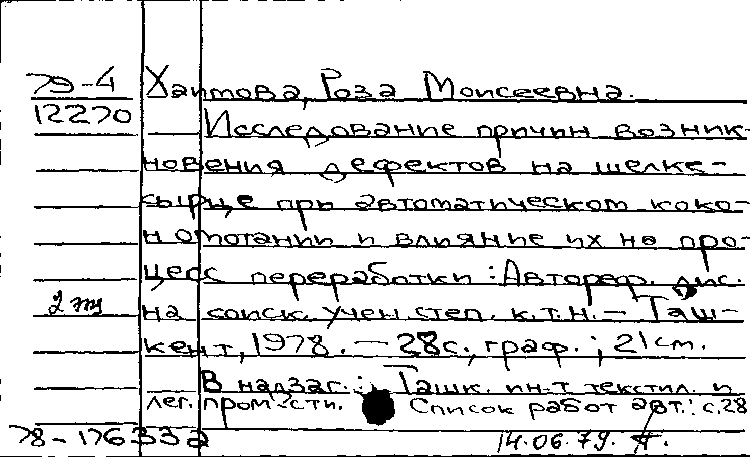 79-4 Хаитова, Роза Моисеевна.
12270 Исследование причин возник-
новения дефектов на шелке-
сырце при автоматическом коко-
номотании и влияние их на про-
цесс переработки : Автореф. дис.
2 эк на соиск. учен. степ. к.т.н. - Таш-
кент, 1978. - 28с., граф. ; 21 см.
В надзаг.: Ташк. ин-т текстил. и
лег. пром-сти. Список работ авт.: с.28
78-176332 14.06.79.